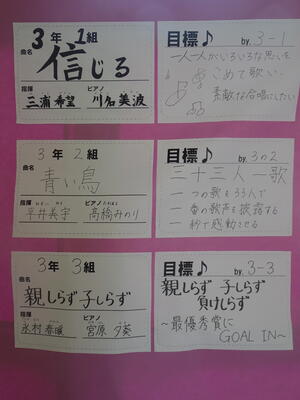 3年1組
曲名
信じる
指揮 ピアノ
三浦希望 川名美波
目標♪ by. 3-1
一人一人がいろいろな思いを
こめて歌い、
素敵な合唱にしたい
3年2組
曲名
青い鳥
指揮 ピアノ
平井美宇 高橋みのり
目標♪ by. 3の2
三十三人一歌
一つの歌を33人で
一番の歌声を披露する
一秒で感動させる
3年3組
曲名
親しらず子しらず
指揮 ピアノ
永村春暖 宮原夕葵
目標♪ by. 3-3
親しらず 子しらず
負けしらず
～最優秀賞に
GOAL IN～